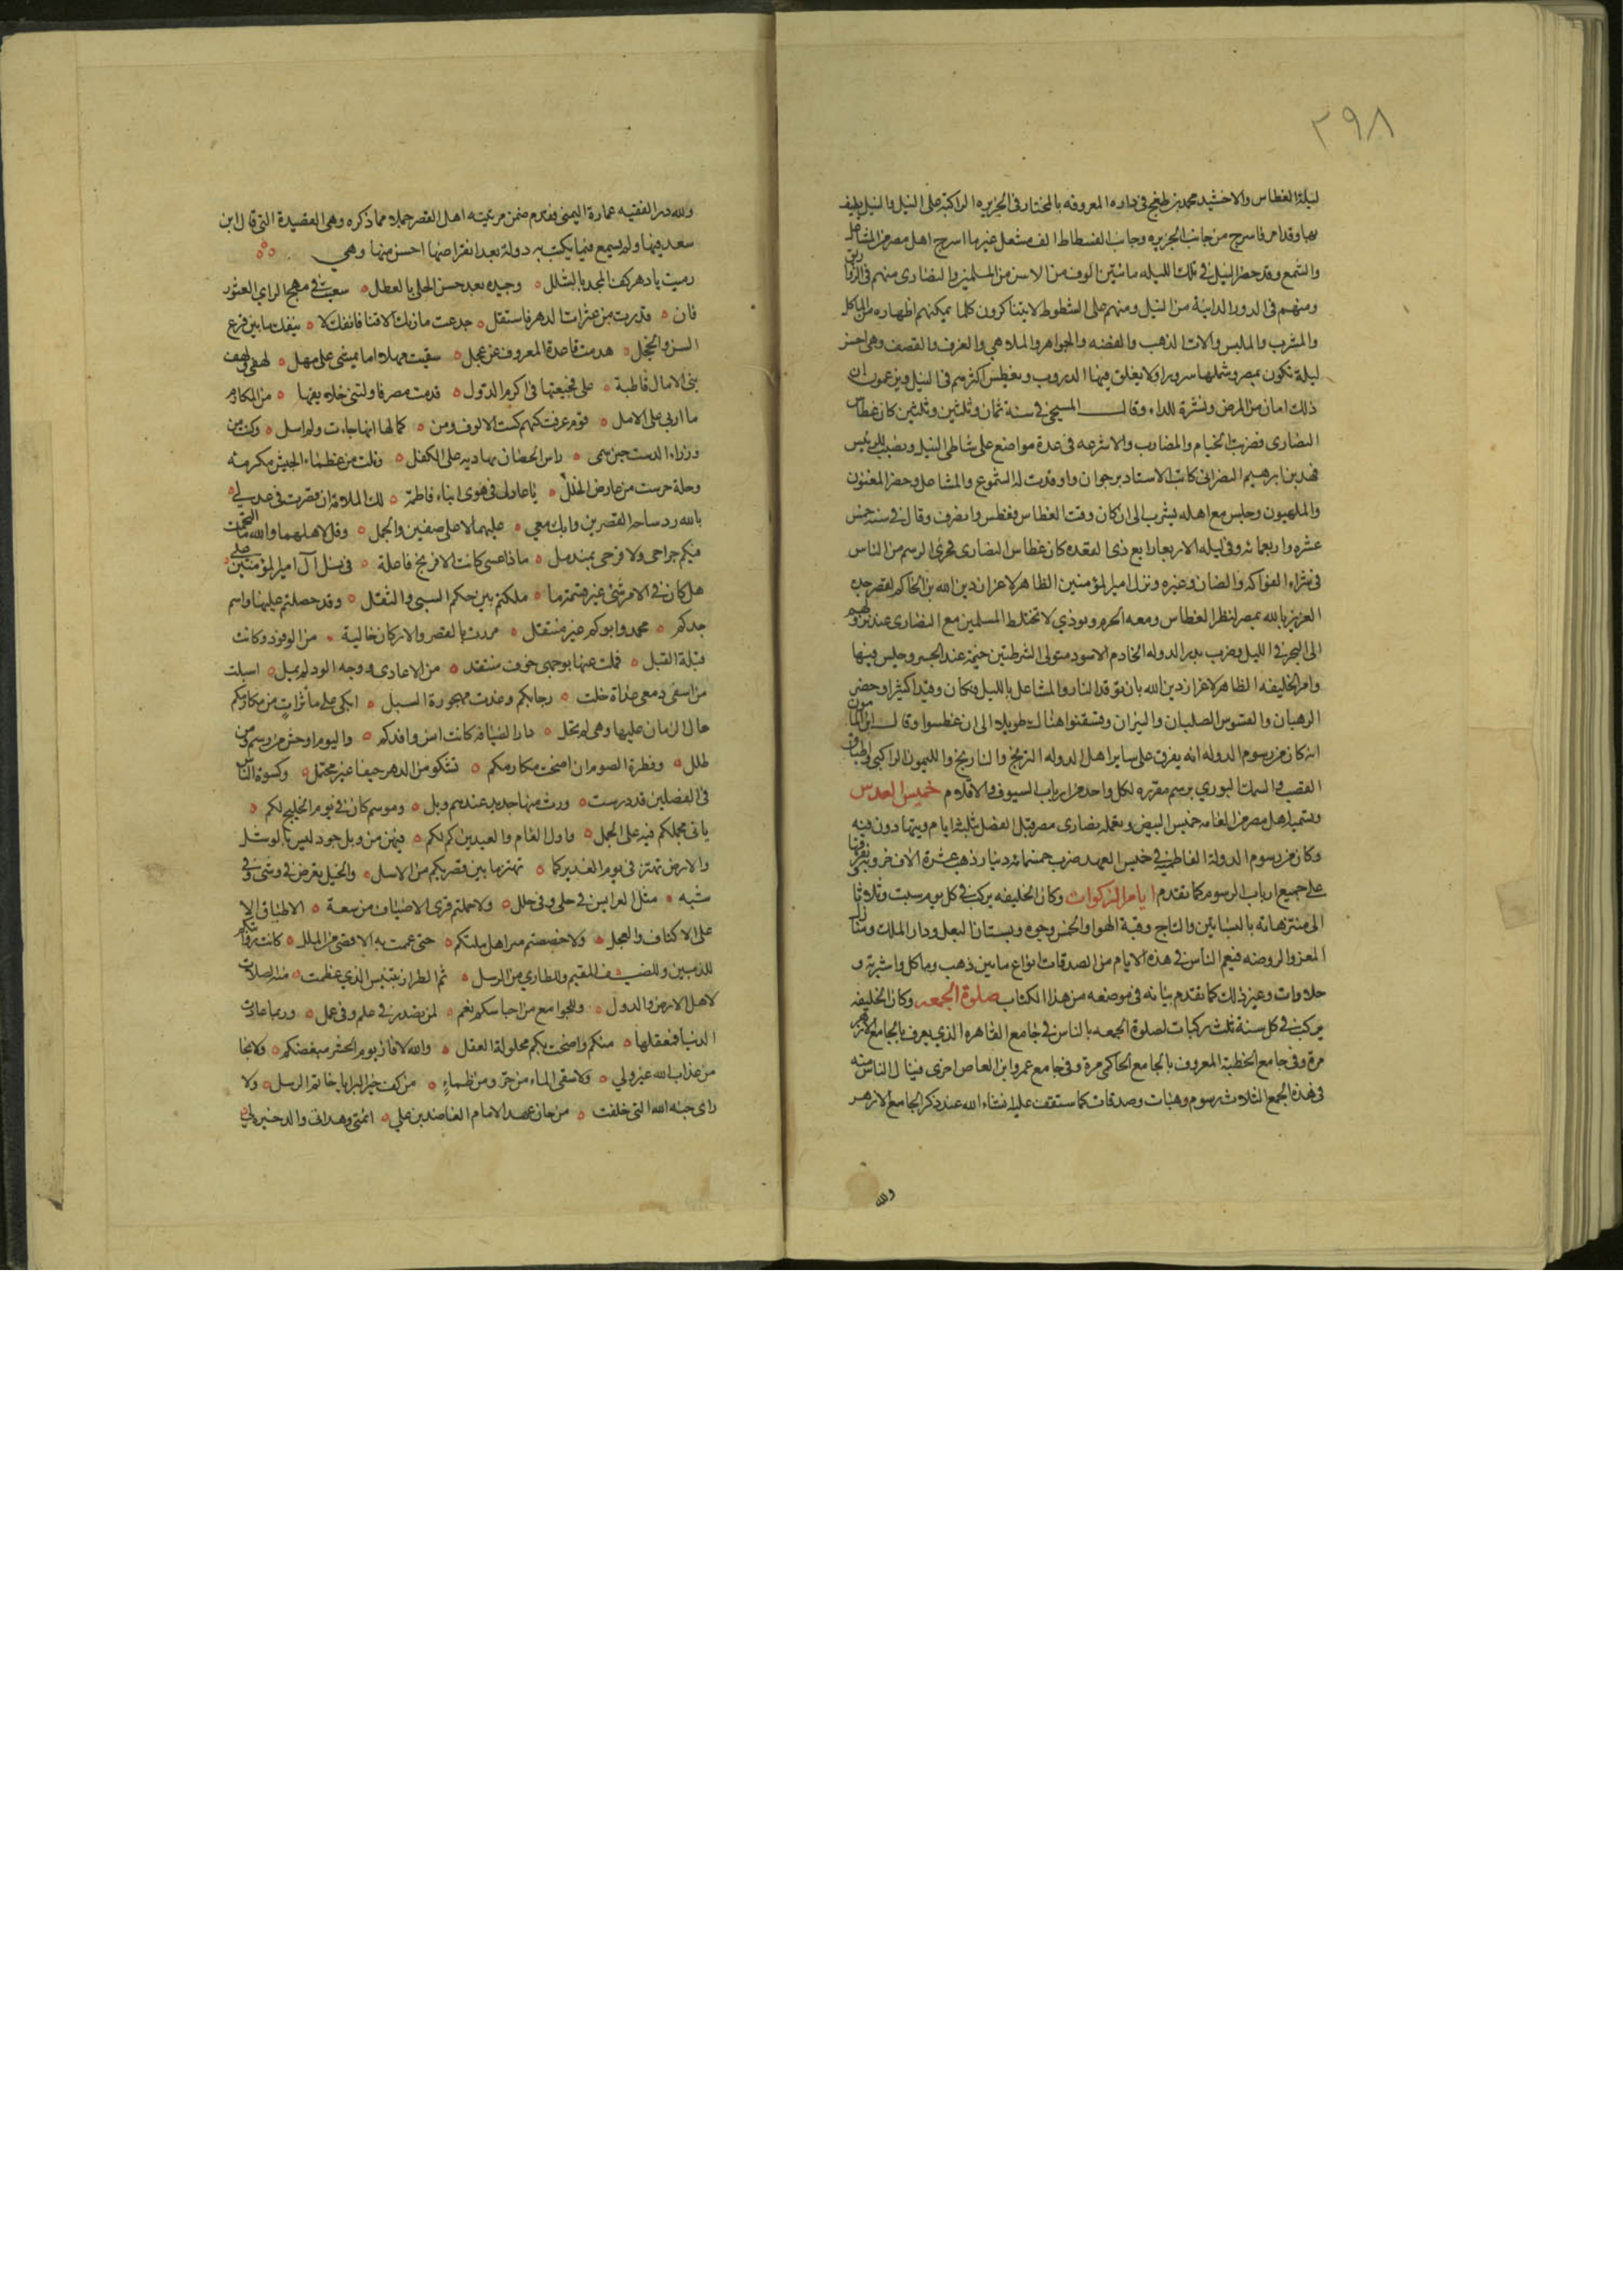 ٢٩٨
ليلة الغطاس والاخشيد محمد بن طغج في داره المعروفه بالمختار في الجزيره الراكبة على النيل والنيل يطيف
بها وقد امر فاسرج من جانب الجزيره وجانب الفسطاط الف مشعل غير ما اسرج اهل مصر من المشاعل
والشمع وقد حضر النيل في تلك الليله مائتين الوف من الاس من المسلمين والنصارى منهم في الزوارق
ومنهم في الدور الدانية من النيل ومنهم على الشطوط لا يتناكرون كلما يمكنهم اظهاره من الماكل
والمشرب والملبس والات الذهب والفضه والجواهر والملاهي والعزف والقصف وهي احسن
ليلة تكون بمصر وشملها سرورا ولا يغلق فيها الدروب ويغطس اكثرهم في النيل ويزعمون ان
ذلك امان من المرض ونشرة للداء وقال المسبحي في سنة ثمان وثلثين وثلثمين كان غطاس
النصارى فضربت الخيام والمضارب والاشرعه في عدة مواضع على شاطى النيل ونصبت للرئيس
فهد بن ابرهيم النصراني كاتب الاستاد برجوان واوقدت له الشموع والمشاعل وحضر المغنون
والملهيون وجلس مع اهله يشرب الى ان كان وقت الغطاس فغطس وانصرف وقال في سنة خمس
عشره واربعمائه وفي ليله الاربعا رابع ذى القعده كان غطاس النصارى فجرى الرسم من الناس
في شراء الفواكه والضان وغيره ونزل امير المؤمنين الظاهر لاعزاز دين الله بن الحاكم لقصر جده
العزيز بالله بمصر لنظر الغطاس ومعه الحرم ونودي لا تختلط المسلمين مع النصارى عند نزولهم
الى البحر في الليل وضرب بدر الدوله الخادم الاسود متولى الشرطتين خيمة عند الجسر وجلس فيها
وامر الخليفه الظاهر لاعزاز دين الله بان توقد النار والمشاعل بالليل فكان وقيدا كثيرا وحضر
الرهبان والقسوس الصلبان والنيران وقسقنوا هناك طويلا الى ان غطسوا وقال ابن المامون
انه كان من رسوم الدوله انه يفرق على ساير اهل الدوله الترنج والنارنج والليمون المراكبى واطباق
القصب والسمك البوري برسم مقرره لكل واحد من ارباب السيوف والاقلام خميس العدس
ويسميه اهل مصر من العامه خميس البيض ويعمله نصارى مصر قبل الفصح بثلثة ايام ويتهادون فيه
وكان من رسوم الدولة الفاطمية في خميس العهد ضرب خمسمائه دينار ذهب عشرة الاف خروبه وتفرقتها
على جميع ارباب الرسوم كما تقدم ايام الركوبات وكان الخليفه يركب في كل يوم سبت وثلوثا
الى منتزهاته بالبساتين والتاج وقبة الهوا والخمس وجوه وبستان البعل ودار الملك ومنازل
المعز والروضه فيعم الناس في هذه الايام من الصدقات انواع ما بين ذهب وماكل واشربه و
حلاوات وغير ذلك كما تقدم بيانه في موضعه من هذا الكتاب صلوة الجمعه وكان الخليفه
يركب في كل سنة ثلث ركبات لصلوة الجمعه بالناس في جامع القاهره الذي يعرف بالجامع الازهر
مرة وفي جامع الخطبة المعروف بالجامع الحاكمى مرة وفي جامع عمرو ابن العاص اخرى فينال الناس منه
في هذه الجمع الثلاث رسوم وهبات وصدقات كما ستقف عليه انشاء الله عند ذكر الجامع الازهر
ولله
ولله در الفقيه عمارة اليمني فقدم ضمن مرثيته اهل القصر جملا مما ذكره وهي القصيدة التي قال ابن
سعد فيها ولم يسمع فيما يكتب به دولة بعد انقراضها احسن منها وهي
رميت يا دهر كف المجد بالشلل وجيده بعد حسن الحلي بالعطل سعيت في منهج الراي العثور
فان قدرت من عثرات الدهر فاستقل جدعت مارنك الاقنا فانفك لا ينفك ما بين قرع
السن والخجل هدمت قاعدة المعروف عن عجل سقيت مهلا اما يمشي على مهل لهفي ولهف
بنى الامال قاطبة على فجيعتها في اكرم الدول قدمت مصر فاولتني خلائفها من المكارم
ما اربى على الامل قوم عرفت بهم كسب الالوف ومن كمالها انها جاءت ولم اسل وكنت من
وزراء الدست حين سمى راس الحصان بهاديه على الكفل ونلت من عظماء الجيش مكرمة
وخلة حرست من عارض الخلل يا عاذلى في هوى ابناء فاطمة لك الملامة ان قصرت في عذلي
بالله رد ساحة القصرين وابك معي عليهما لا على صفين والجمل وقل لاهلهما والله ما التحمت
فيكم جراحى ولا قرحى بمندمل ماذا عسى كانت الافرنج فاعلة في نسل آل امير المؤمنين علي
هل كان في الامر شئ غير قسمة ما ملكتم بين حكم السبى والنفل وقد حصلتم عليها واسم
جدكم محمد وابوكم غير منتقل مررت بالقصر والاركان خالية من الوفود وكانت
قبلة القبل فملت عنها بوجهى خوف منتقد من الاعادى ووجه الود لم يمل اسبلت
من اسفى دمعى غداة خلت رحابكم وغدت مهجورة السبل ابكى على ماثرات من مكارمكم
حال الزمان عليها وهي لم تحل دار الضيافة كانت انس وافدكم واليوم اوحش من رسم ومن
طلل وفطرة الصوم ان اضحت مكارمكم تشكو من الدهر حيفا غير محتمل وكسوة الناس
في الفصلين قد درست ورث منها جديد عندهم وبلى وموسم كان في يوم الخليج لكم
ياتى تجملكم فيه على الجمل واول العام والعيدين كم لكم فيهن من وبل جود ليس بالوشل
والارض تهتز في يوم الغدير كما تهتز ما بين قصريكم من الاسل والخيل تعرض في وشى وفي
شيه مثل العرايس في حلى وفي حلل ولا حملتم قرى الاضياف من سعة الاطباق الا
على الاكتاف والعجل ولا خصصتم ببر اهل ملتكم حتى عممت به الاقصى من الملل كانت رواتبكم
للذميين وللضيف المقيم وللطاري من الرسل ثم الطراز بتنيس الذي عظمت منه الصلات
لاهل الارض والدول وللجوامع من احباسكم نعم لمن تصدر في علم وفي عمل وربما عادت
الدنيا فعقلها منكم واضحت بكم محلولة العقل والله لا فاز يوم الحشر مبغضكم ولا نجا
من عذاب الله غير ولي ولا سقى الماء من حر ومن ظماء من كف خير البرايا خاتم الرسل ولا
راى جنة الله التي خلقت من خان عهد الامام العاضد بن علي ائمتى وهداتى والذخيرة لى